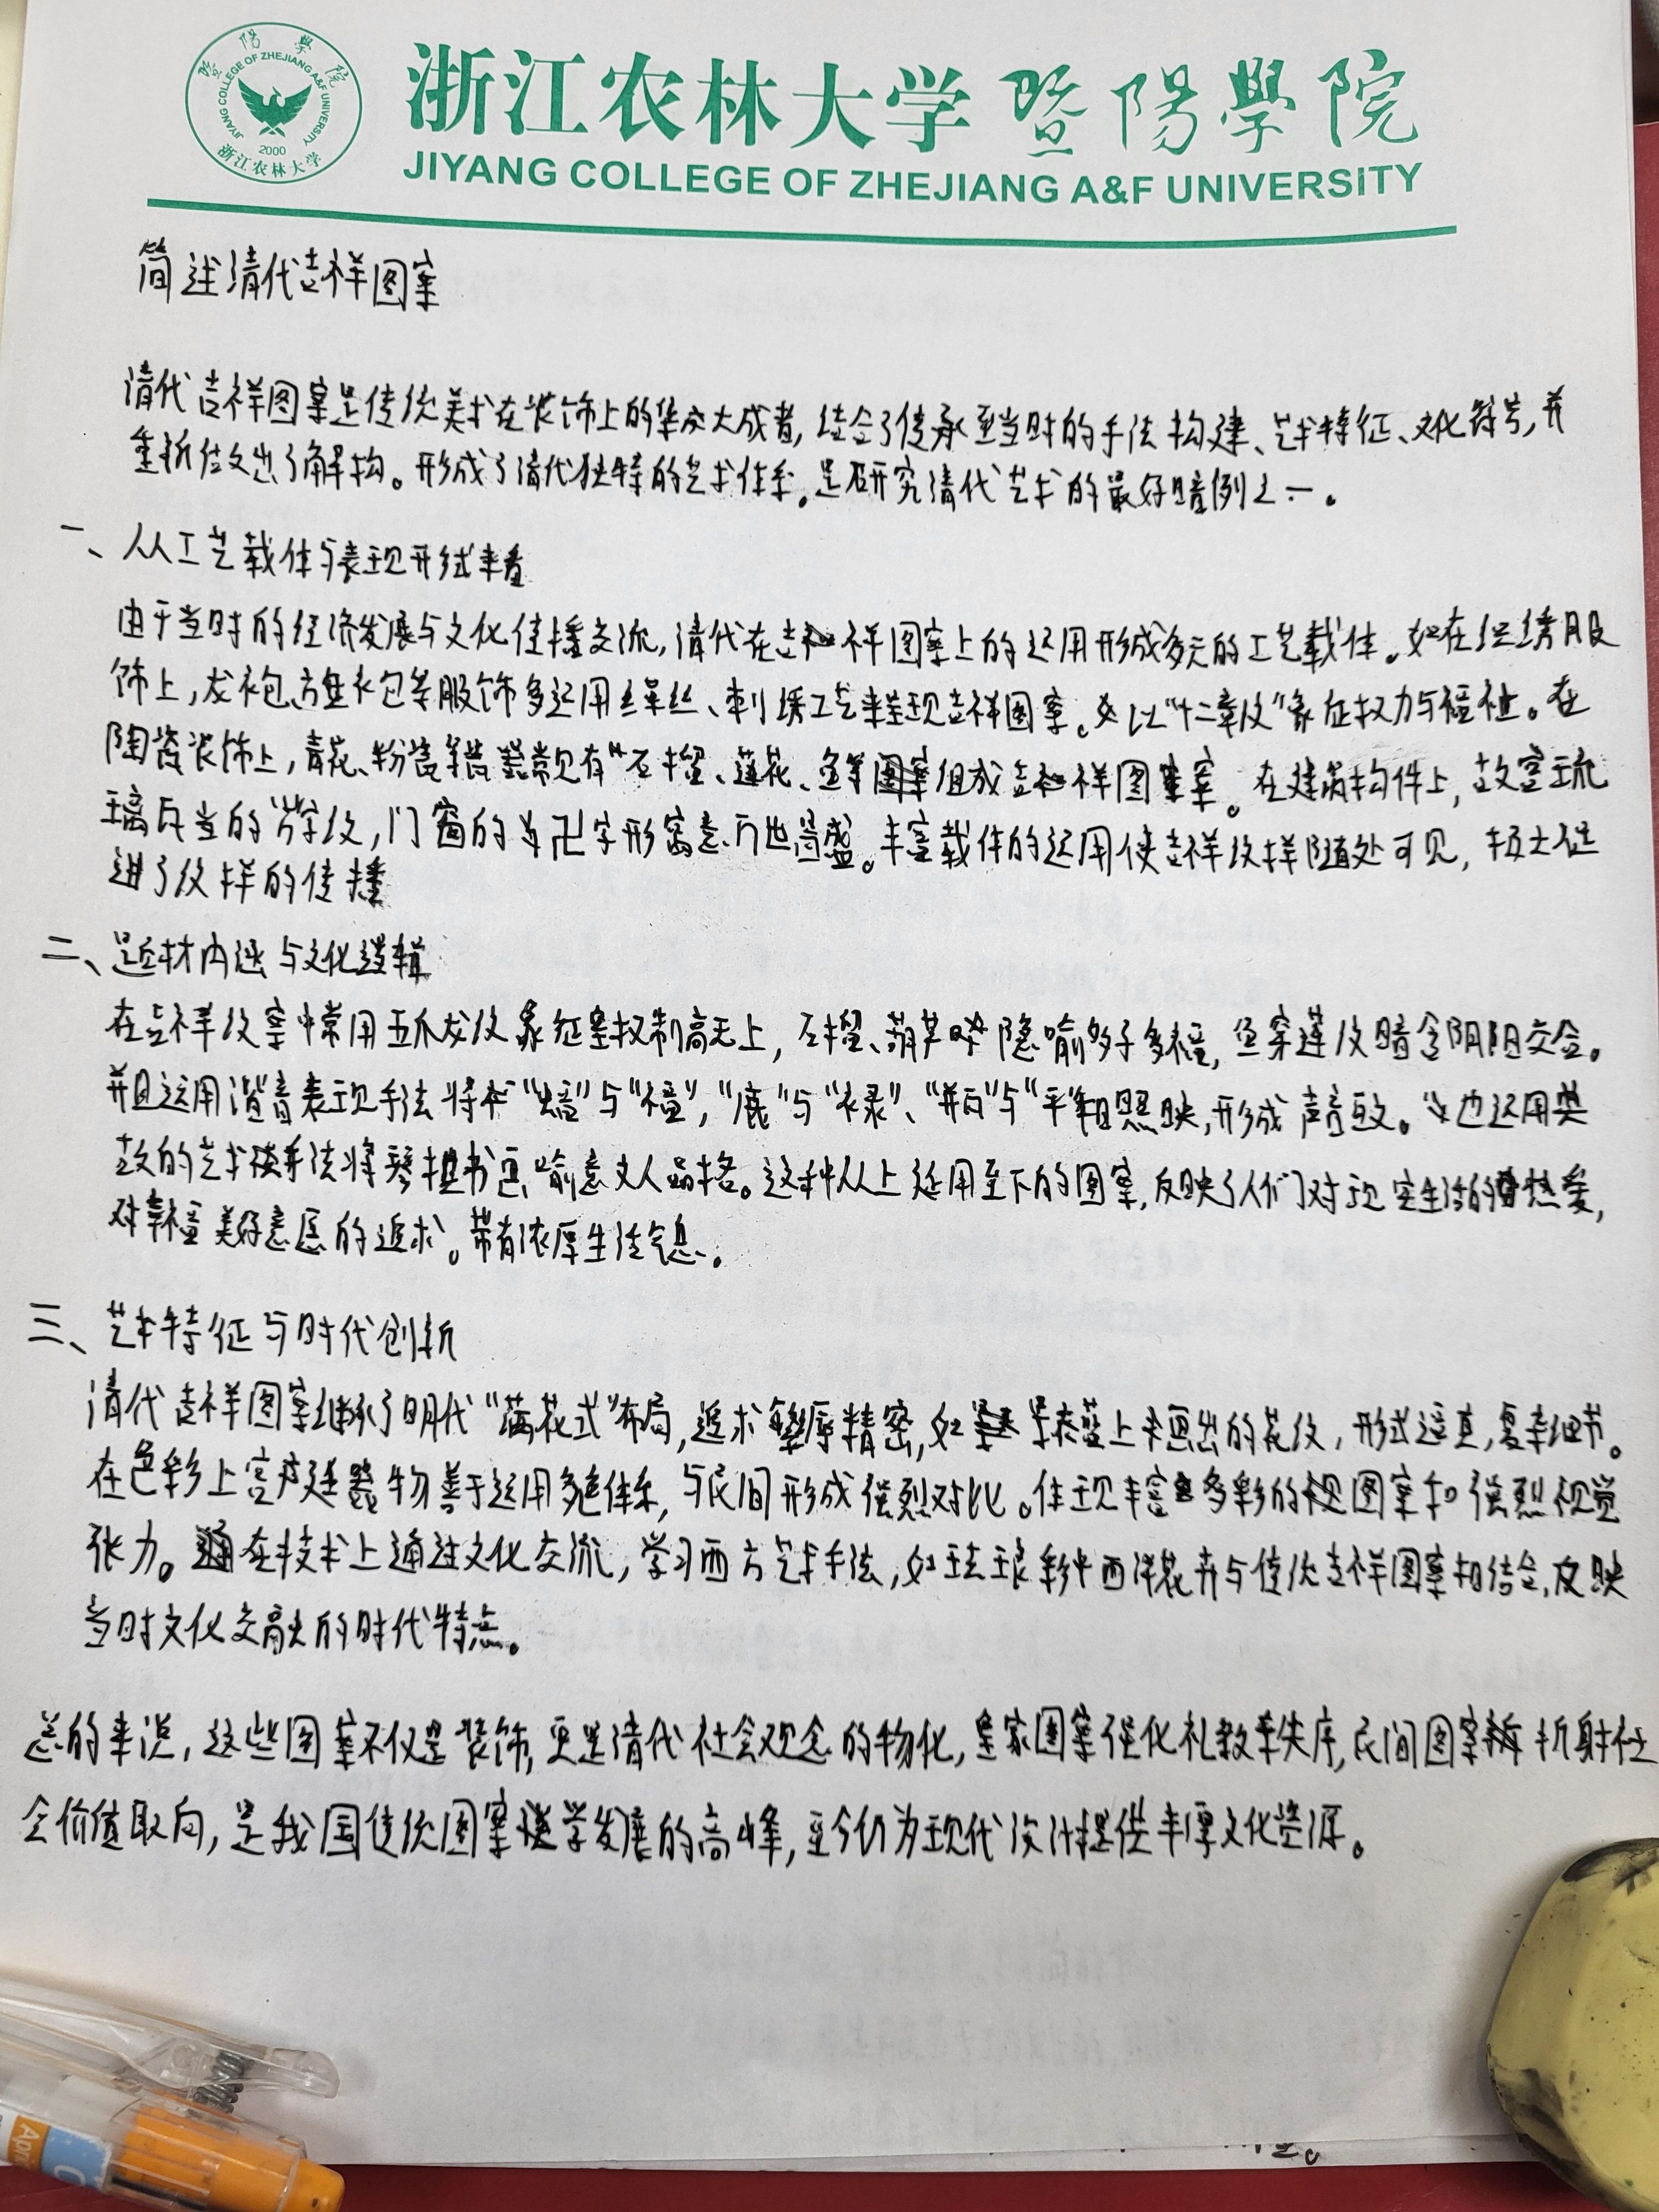 暨陽學院
JIYANG COLLEGE OF ZHEJIANG A&F UNIVERSITY
2000
浙江农林大学
浙江农林大学暨陽學院
JIYANG COLLEGE OF ZHEJIANG A&F UNIVERSITY
简述清代吉祥图案
清代吉祥图案是传统美术在装饰上的集大成者,结合了传承至当时的手法构建、艺术特征、文化符号,并
重新做出了解构。形成了清代独特的艺术体系。是研究清代艺术的最好例之一。
一、从工艺载体与表现形式来看
由于当时的经济发展与文化传播交流,清代在吉祥图案上的运用形成多元的工艺载体。如在丝绣服
饰上,龙袍、等服饰多运用缂丝、刺绣工艺来呈现吉祥图案。以“十二章纹”象征权力与福祉。在
陶瓷装饰上,青花、粉瓷等瓷器常见有“石榴、莲花、鱼等组成吉祥图案。在建筑构件上,故宫琉
璃瓦当的纹,门窗的卍字形寓意万世昌盛。丰富载体的运用使吉祥纹样随处可见,极大促
进了纹样的传播
二、题材内涵与文化逻辑
在吉祥纹案中常用五爪龙纹象征皇权制高无上,石榴、葫芦隐喻多子多福,鱼穿莲纹暗含阴阳交合。
并且运用谐音表现手法将“蝠”与“福”,“鹿”与“禄”、“瓶”与“平”相照映,形成声音互文。也运用典
故的艺术手法将琴棋书画喻意文人品格。这种从上延用至下的图案,反映了人们对现实生活的热爱,
对幸福美好意愿的追求。带有浓厚生活气息。
三、艺术特征与时代创新
清代吉祥图案继承了明代“满花式”布局,追求繁厚精密,如景泰蓝上来画出的花纹,形式逼真,复杂细节。
在色彩上宫廷器物善于运用多色体系,与民间形成强烈对比。体现丰富多彩的图案和强烈视觉
张力。在技术上通过文化交流,学习西方艺术手法,如珐琅彩中西洋花卉与传统吉祥图案相结合,反映
当时文化交融的时代特点。
总的来说,这些图案不仅是装饰,更是清代社会观念的物化,皇家图案强化礼教秩序,民间图案折射社
会价值取向,是我国传统图案学发展的高峰,至今仍为现代设计提供丰厚文化资源。